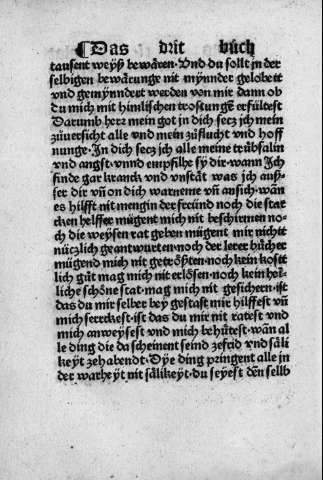 ¶ Das drit bůch
tausent weyß bewåren · Vnd du sollt in der
selbigen bewårunge nit mynnder gelobett
vnd gemynndert werden von mir dann ob
du mich mit himlischen trostungẽ erfültest
Darumb herr mein got in dich secz jch mein
zůuersicht alle vnd mein zůflucht vnd hoff
nunge · In dich secz jch alle meine trůbsalin
vnd angst · vnnd empfilhe sy dir · wann Jch
finde gar kranck vnd vnståt was jch auß-
ser dir vñ on dich warneme vñ ansich · wãn
es hilfft nit mengin der freünd noch die star
cken helffer mügent mich nit beschirmen no-
ch die weysen rat geben mügent mir nichtt
nüczlich geantwurten · noch der lerer bücher
mügend mich nit getrößten · noch kein kostt
lich gůt mag mich nit erlösen · noch kein hei-
liche schöne stat · mag mich nit gesichern · ist
das du mir selber bey gestast mir hilffest vñ
mich serrckest · ist das du mir nit ratest vnd
mich anweysest vnd mich behůtest · wãn al
le ding die da scheinent seind zefrid vnd såli
keyt zehabendt · Dÿe ding pringent alle jn
der warheyt nit sålikeyt · du seyest dẽn selb